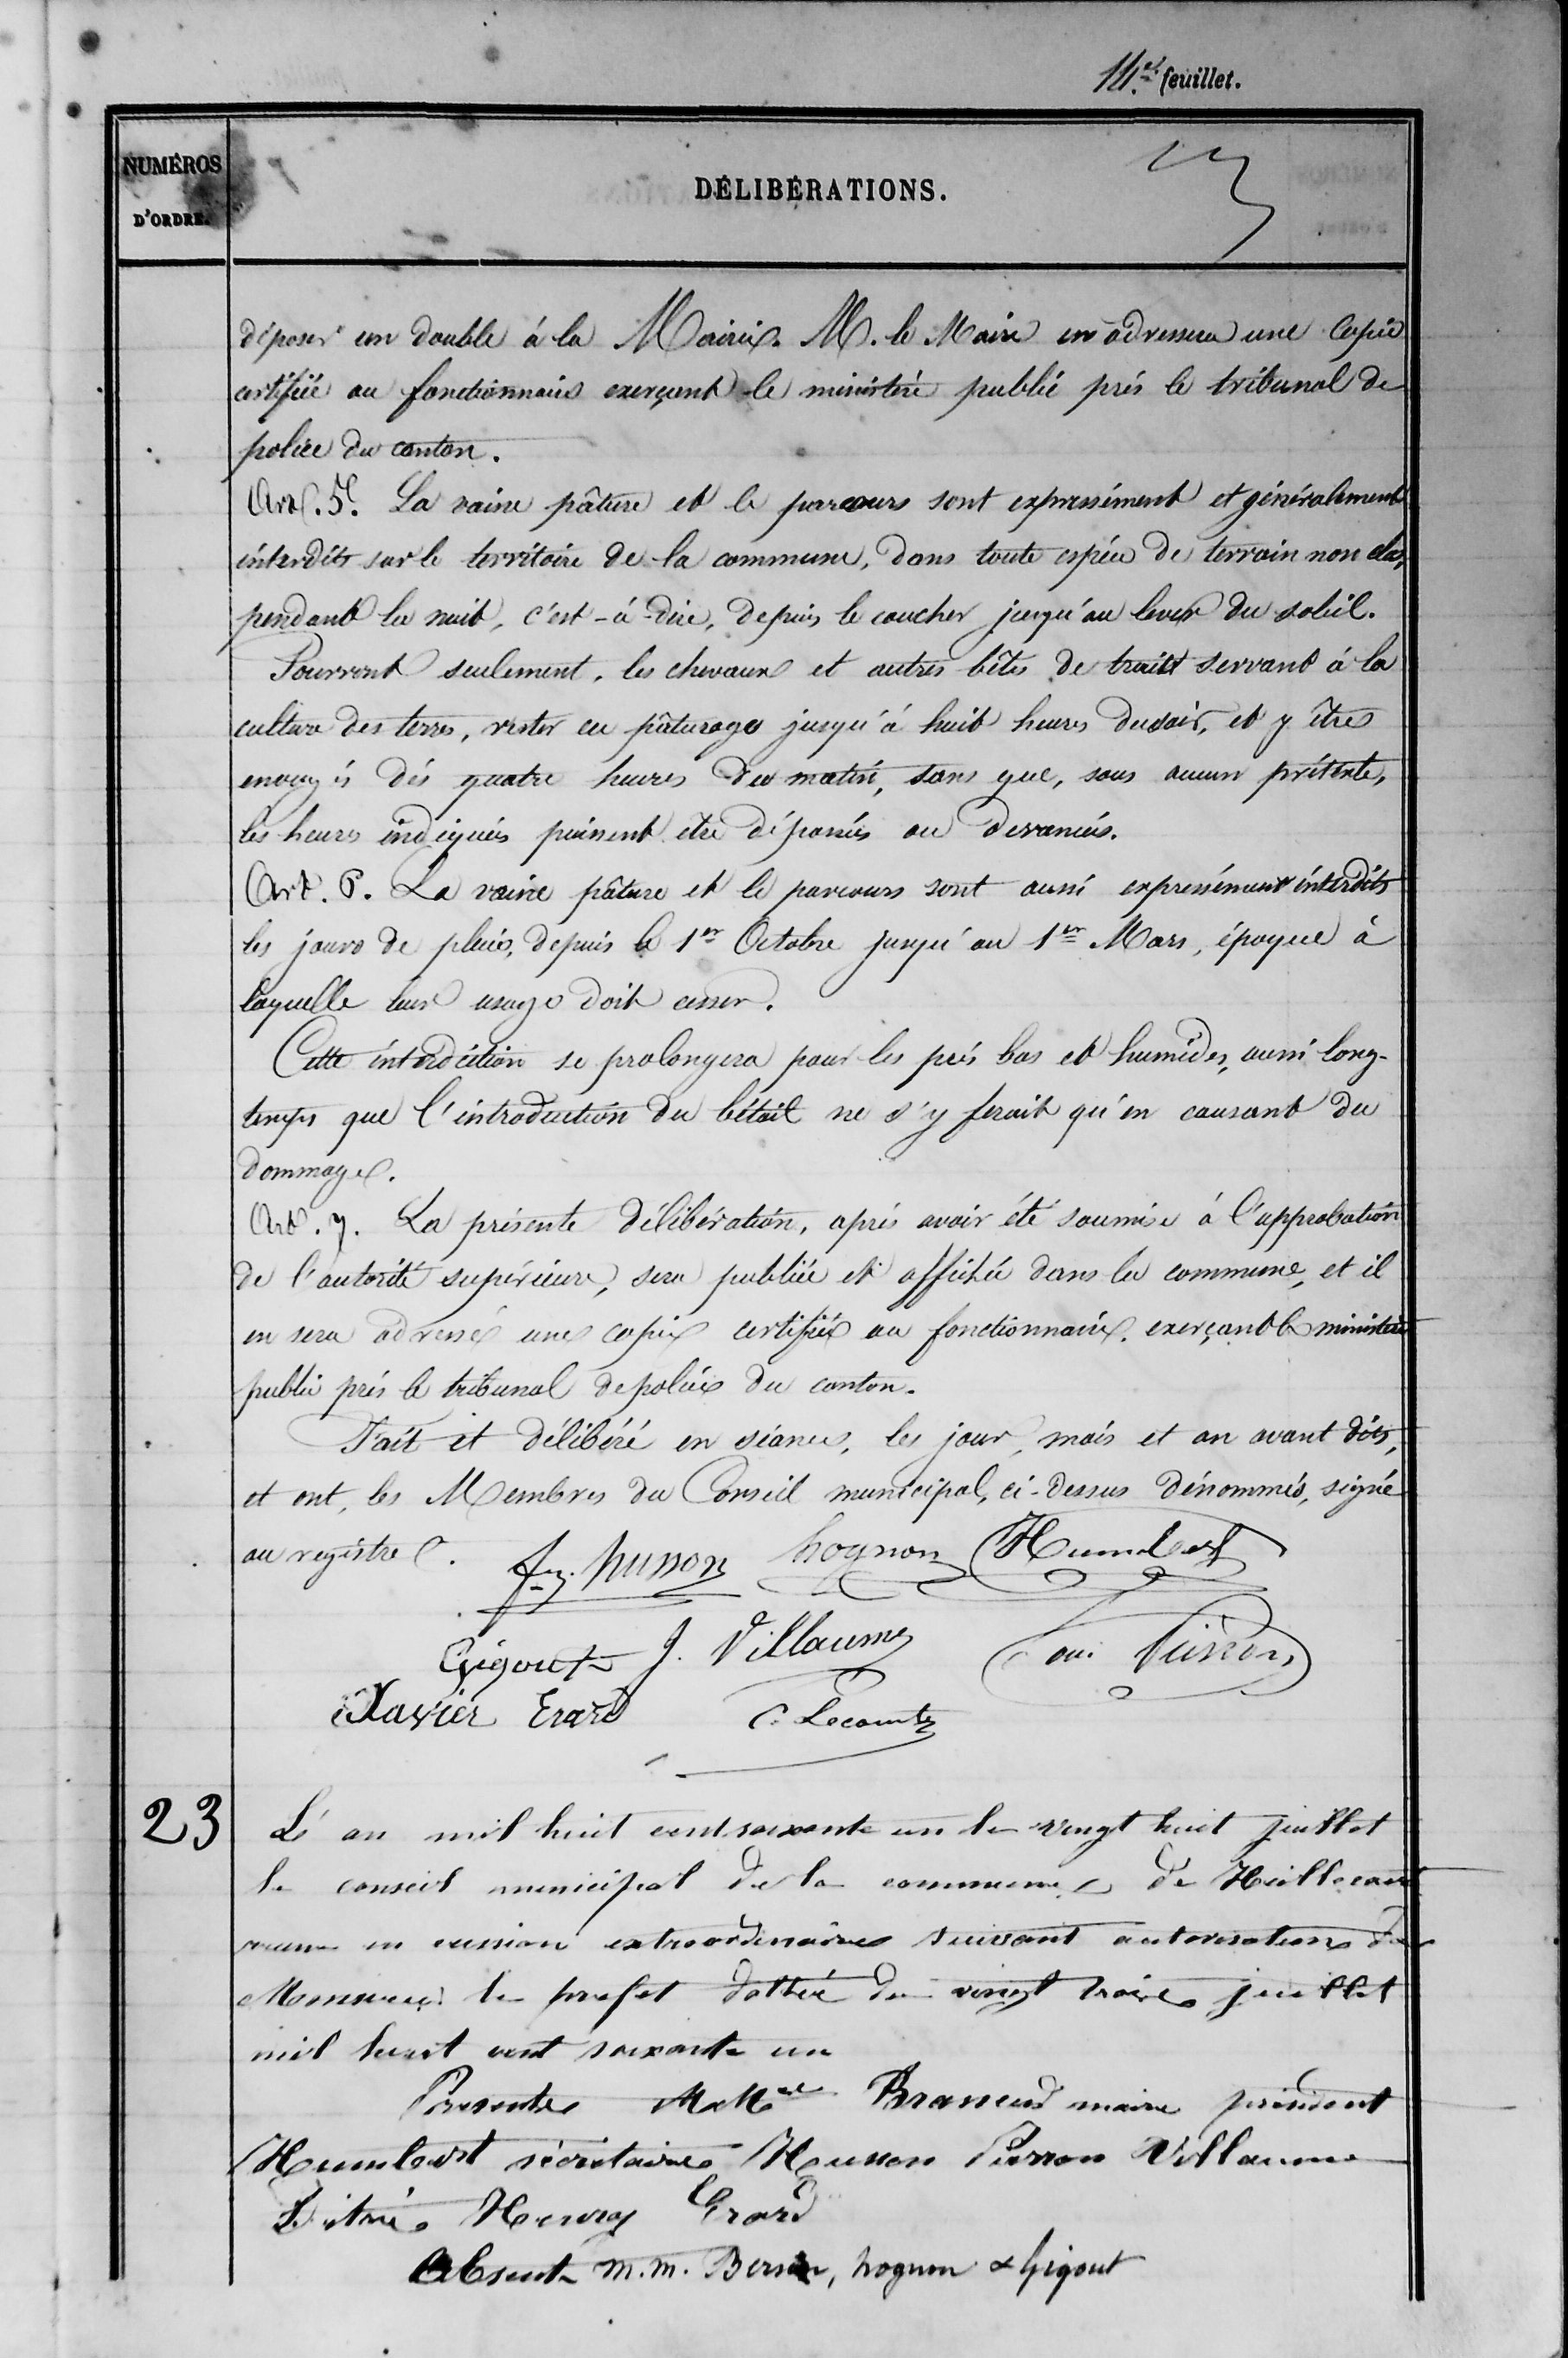 14.e feuillet.
NUMÉROS
D'ORDRE.
DÉLIBÉRATIONS.
déposer un double à la Mairie. M. le Maire en adressera une Copie
certifiée au fonctionnaire exerçant le ministère public près le tribunal de
police du canton.
Art. 5. La vaine pâture et le parcours sont expressément et généralement
interdits sur le territoire de la commune, dans toute espèce de terrain non clos,
pendant la nuit, c'est-à-dire, depuis le coucher jusqu'au lever du soleil.
Pourront seulement, les chevaux et autres bêtes de trait servant à la
culture des terres, rester en pâturage jusqu'à huit heures du soir, et y être
envoyés dès quatre heures du matin, sans que, sous aucun prétexte,
les heures indiquées puissent être dépassées ou devancées.
Art. 6. La vaine pâture et le parcours sont aussi expressément interdits
les jours de pluie, depuis le 1er Octobre jusqu'au 1er Mars, époque à
laquelle leur usage doit cesser.
Cette interdiction se prolongera pour les prés bas et humides, aussi long-
temps que l'introduction du bétail ne s'y ferait qu'en causant du
dommage.
Art. 7. La présente délibération, après avoir été soumise à l'approbation
de l'autorité supérieure, sera publiée et affichée dans la commune, et il
en sera adressé une copie certifiée au fonctionnaire exerçant le ministère
public près le tribunal de police du canton.
Fait et délibéré en séance, les jour, mois et an avant dits,
et ont, les Membres du Conseil municipal, ci-dessus dénommés, signé
au registre.
husson hognon Humbert
Gigout J. Villaume
Xavier Erard C. Lecomte
23
L'an mil huit cent soixante un le vingt huit juillet
le conseil municipal de la commune de Huillecourt
réunie en cession extraordinaire suivant autorisation de
le prefet dattée du vingt trois juillet
mil huit cent soixante un
Presents maire président
Humbert sécrétaire Husson Pierron Villaume
Henry Erard
Absents m.m. hognon & Gigout